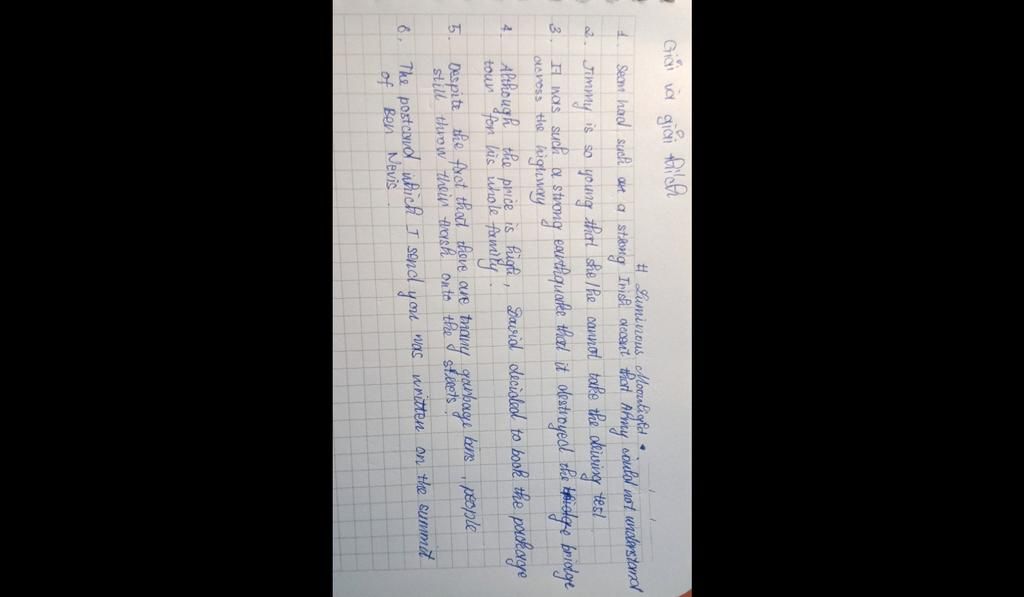 Giải và giải thích
# Luminous Moonlight
1. Sean had such an a strong Irish accent that Army could not understand
2. Jimmy is so young that she/he cannot take the driving test
3. It was such a strong earthquake that it destroyed the bridge bridge
across the highway
4. Although the price is high, David decided to book the package
tour for his whole family.
5. Despite the fact that there are many garbage bins, people
still throw their trash onto the streets.
6. The postcard which I send you was written on the summit
of Ben Nevis.